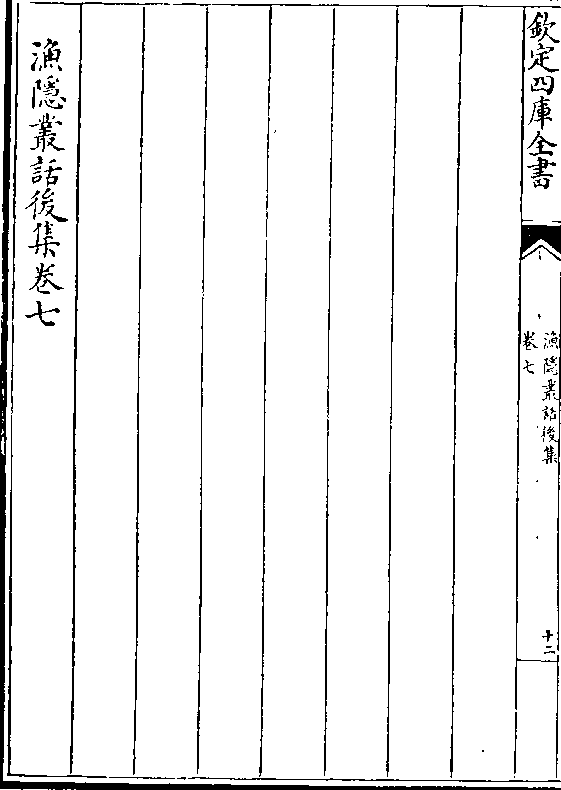 欽定四庫全書
漁隱叢話後集
卷七
十二
漁隱叢話後集卷七